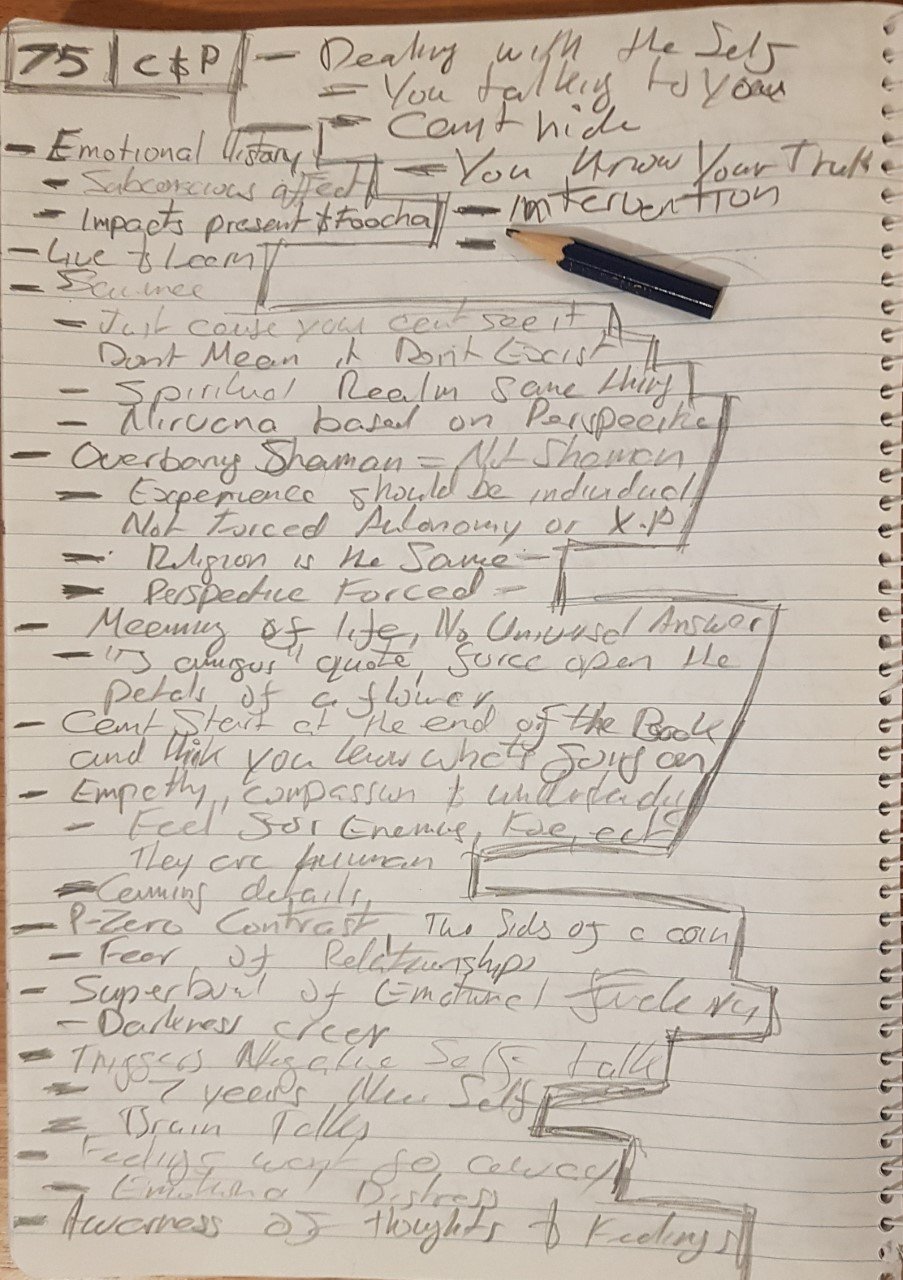 75 | C & P
- Dealing with the Self
= You talking to you
- Cant hide
- You Know Your Truth
- Intervention
-
- Emotional History
- Subconscious affect
- Impacts present & Foocha
- Live & Learn
-
- Just cause you cant see it
Dont Mean it Dont Exist
- Spiritual Realm Same thing
- Nirvana based on Perspective
- Overbang Shaman = Not Shaman
- Experience should be individual
Not Forced Autonomy or X.P
- Religion is the Same -
- Perspective Forced -
- Meening of life, No Universal Answer
- "3 amigos" quote, force open the
petals of a flower
- Cant Start at the end of the Book
and think you know whats going on
- Empathy, compassion &
- Feel for Enemies, Foe, ect
They are human
- details,
- P-Zero Contrast, Two Sids of a coin
- Fear of Relationships
- Superbowl of Emotional
- Darkness creep
- Triggers Negative Self talk
- 7 years New Self
- Brain Talks
- Feelings wont go away
- Emotional Distress
- Awarness of thoughts & Feelings